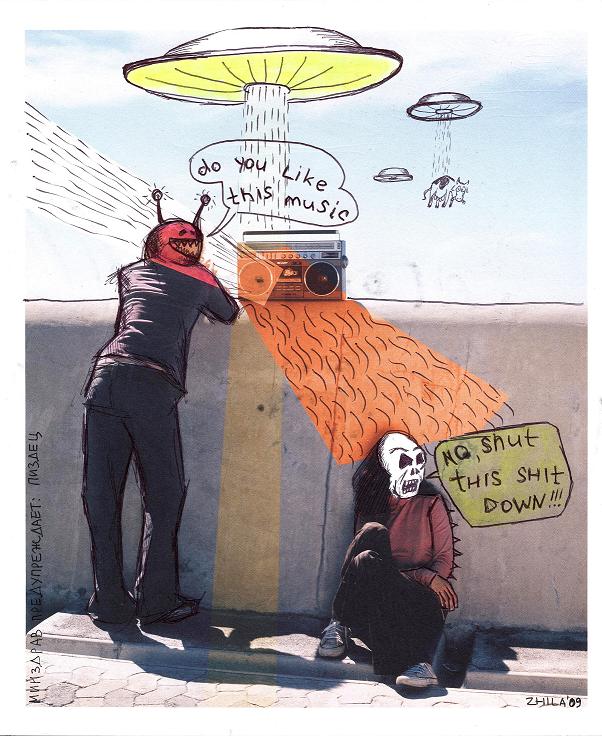 do you like
this music
NO, shut
THIS SHIT
DOWN!!!
МИНЗДРАВ ПРЕДУПРЕЖДАЕТ: ПИЗДЕЦ
ZHILA'09